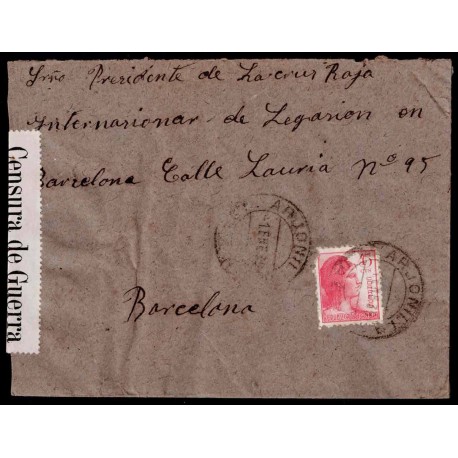 Srño Prezidente de La cruz Roja
Internasionar de Legasion en
Barcelona Calle Lauria Nº 95
Barcelona
Censura de Guerra
ARJONILL
1 FEB
ARJONILLA